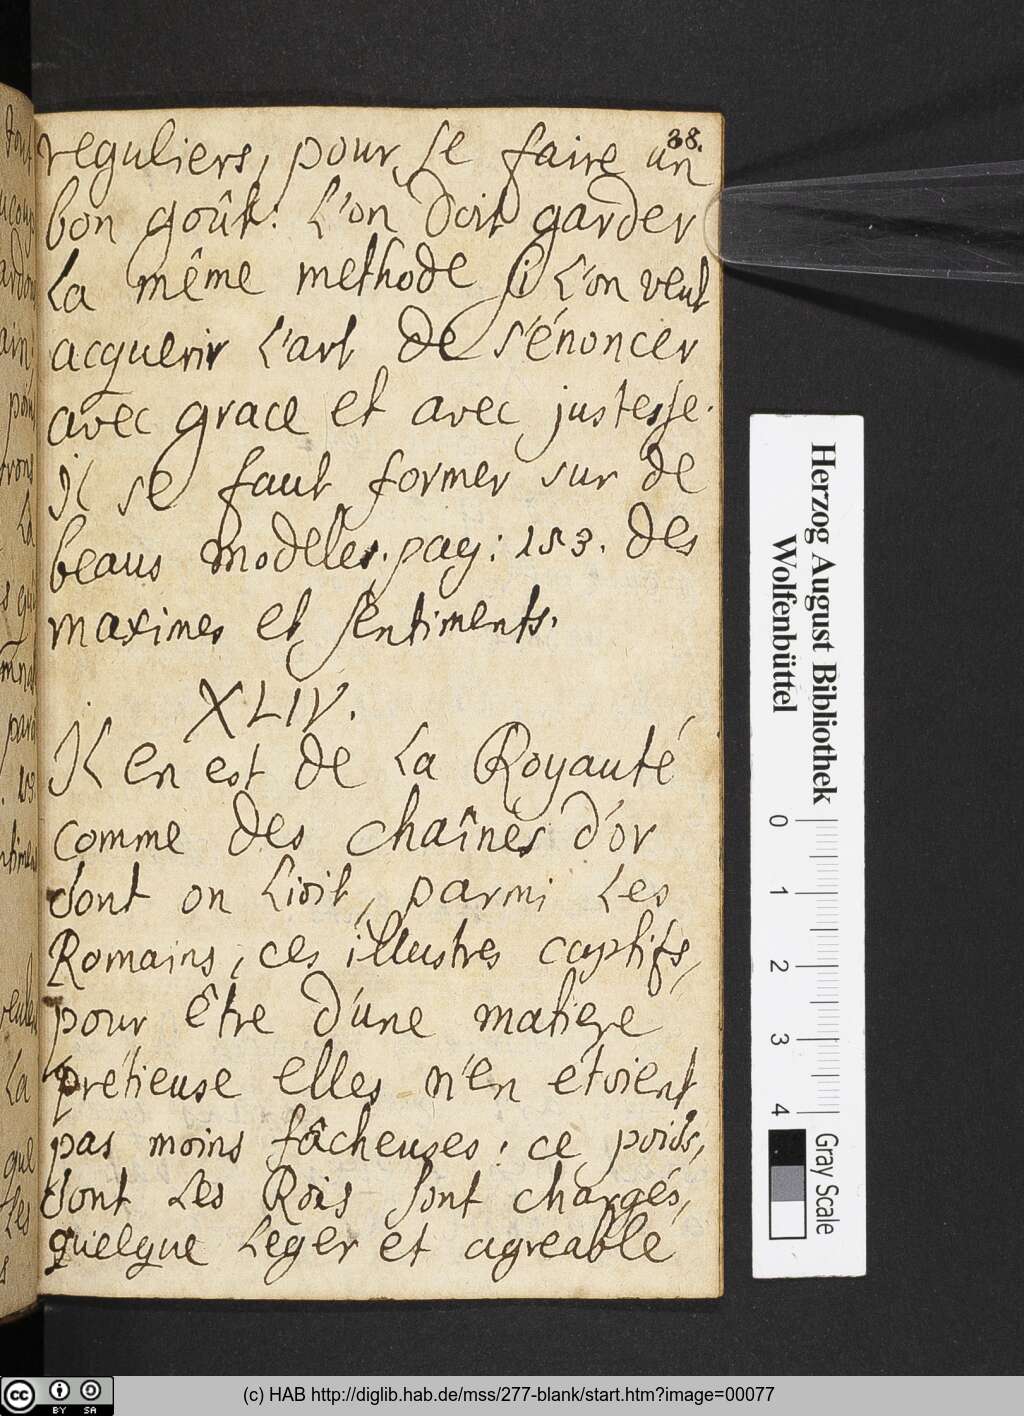 38.
reguliers, pour se faire un
bon goût: L'on doit garder
La même methode si L'on veut
acquerir L'art de s'énoncer
avec grace et avec justesse.
Il se faut former sur de
beaus modelles. pag: 153. des
maximes et sentiments.
XLIV.
Il en est de La Royauté
comme des chaînes d'or
dont on Lioit, parmi Les
Romains, ces illustres captifs,
pour être d'une matiere
prétieuse elles n'en étoient
pas moins fâcheuses: ce poids,
dont Les Rois sont chargés,
quelque Leger et agreable
Herzog August Bibliothek
Wolfenbüttel
0 1 2 3 4
Gray Scale
cc BY SA
(c) HAB http://diglib.hab.de/mss/277-blank/start.htm?image=00077